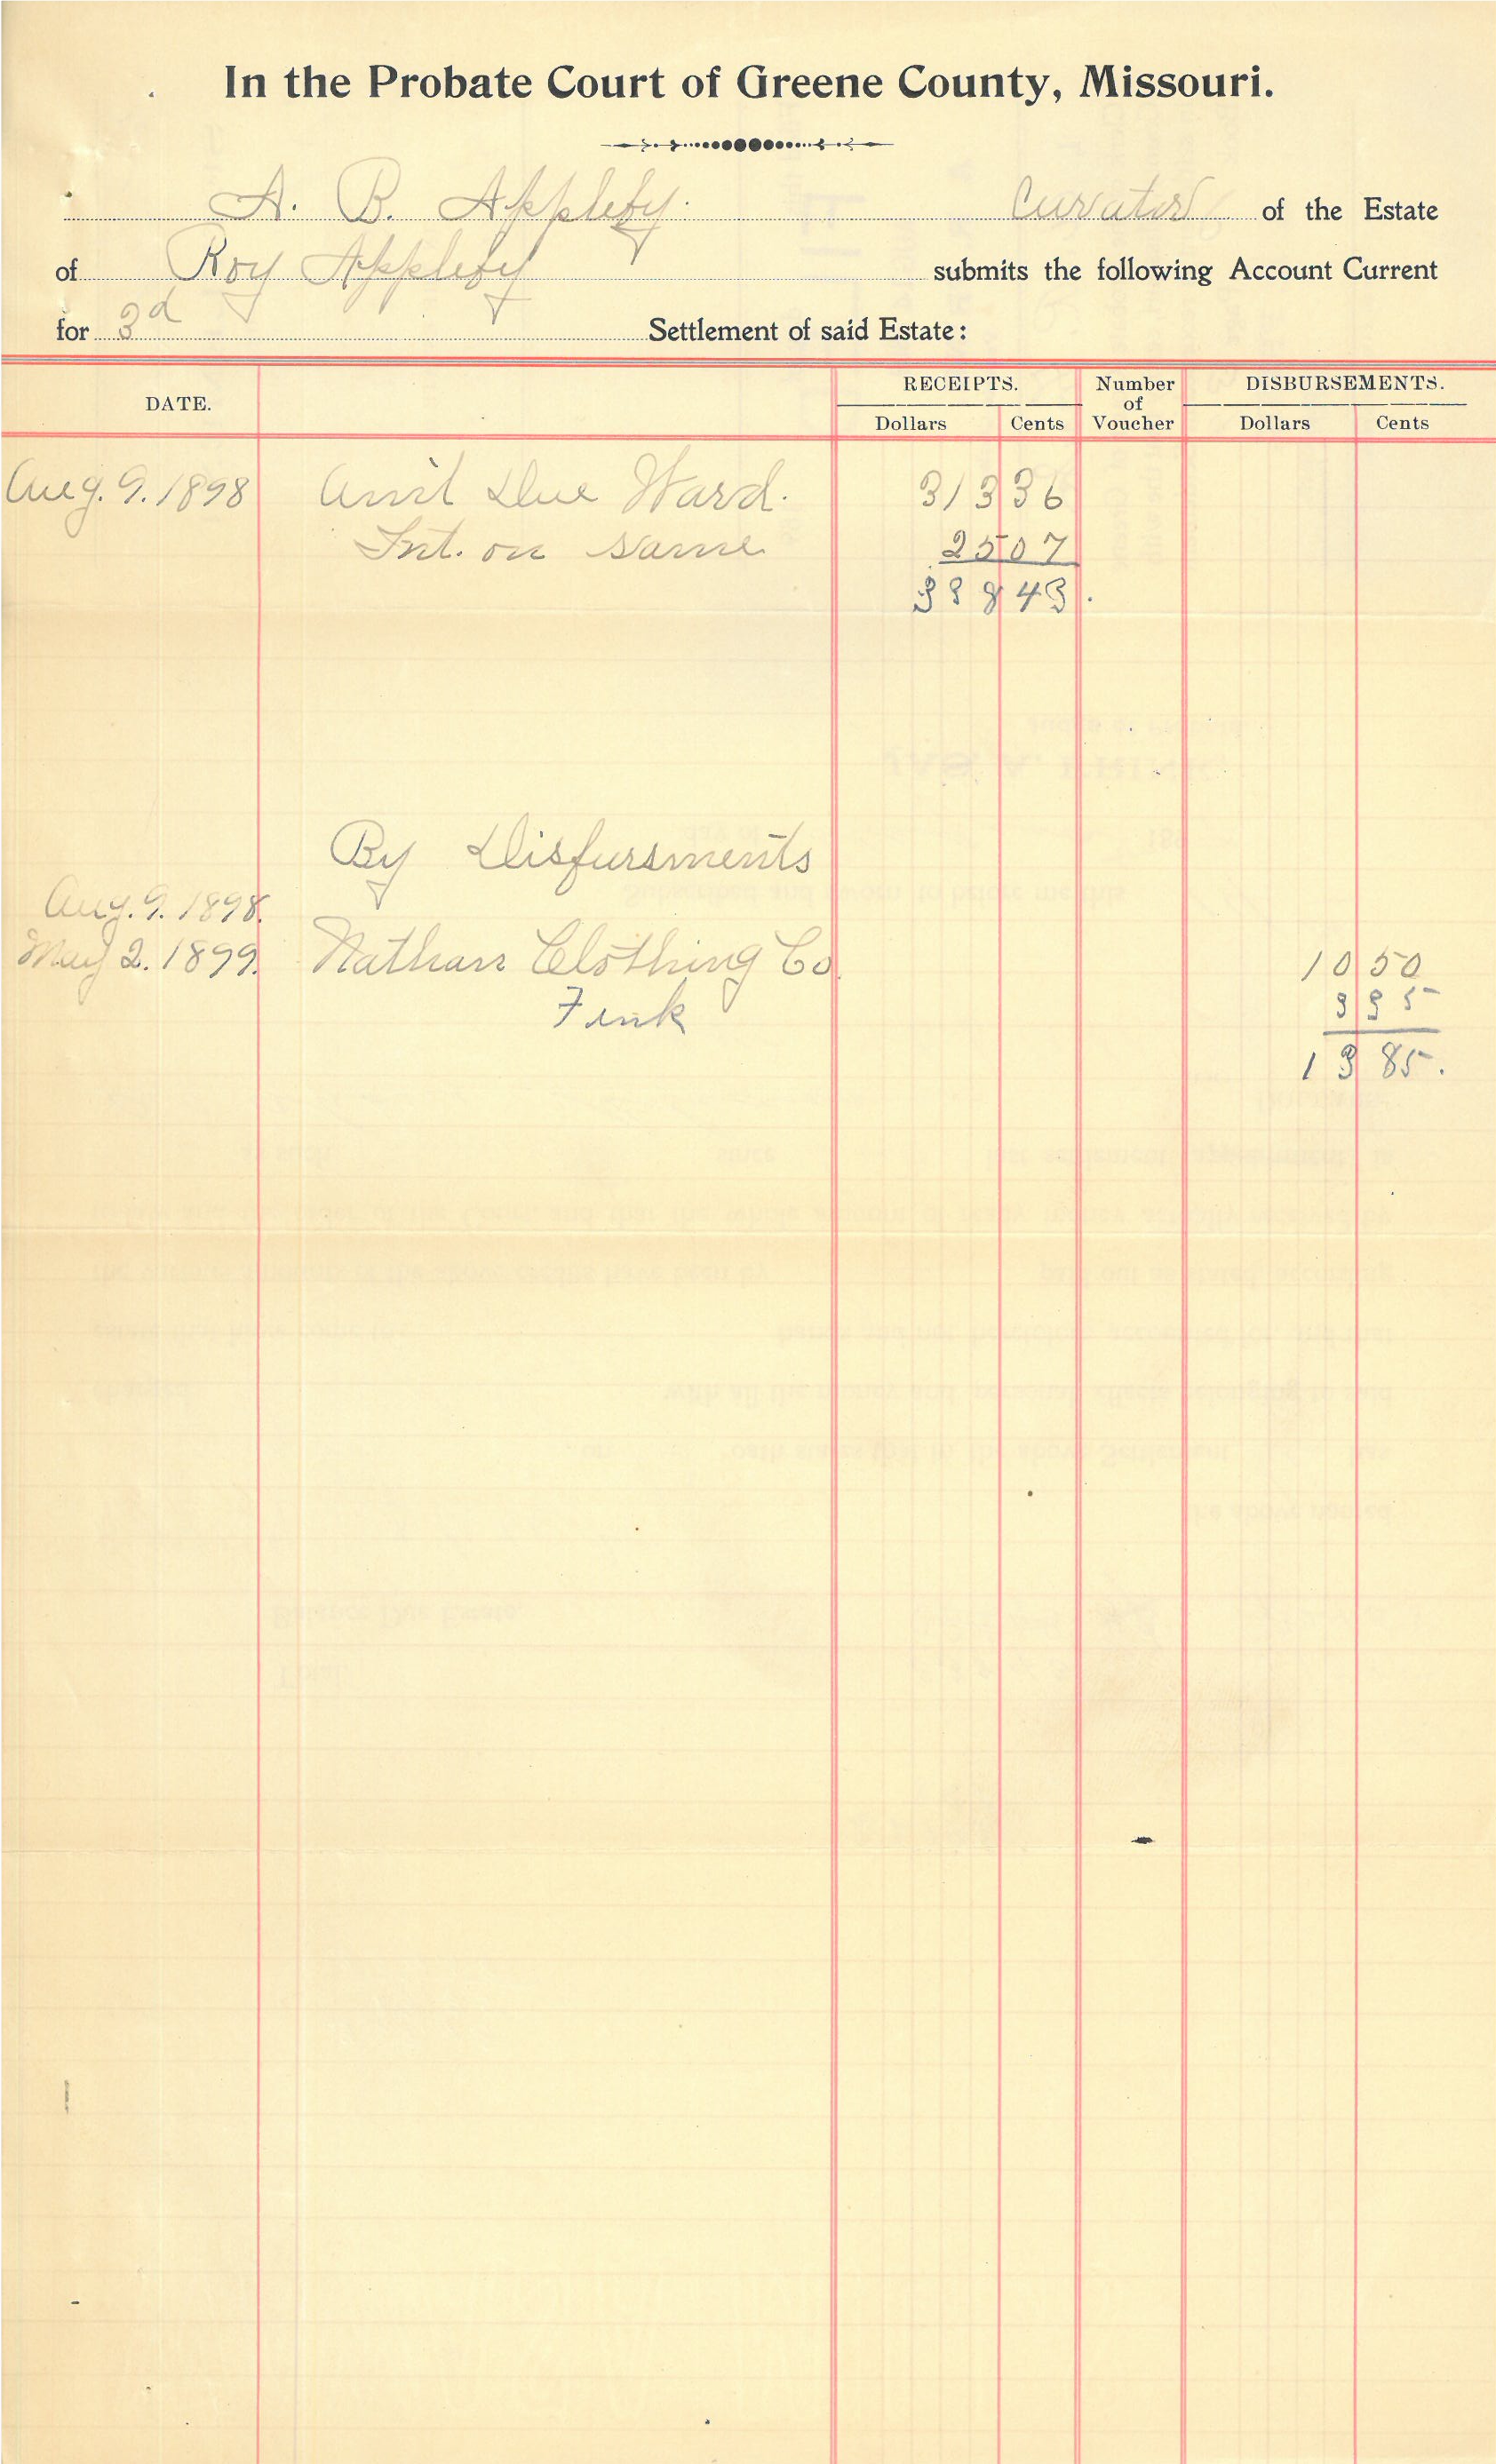 In the Probate Court of Greene County, Missouri.
A. B. Appleby. Curator of the Estate
of Roy Appleby submits the following Account Current
for 3d Settlement of said Estate:
DATE. RECEIPTS. Number of Voucher DISBURSEMENTS.
Dollars Cents Dollars Cents
Aug. 9. 1898 Amt Due Ward. 313 36
Int. on same 25 07
338 43.
By Disbursments
Aug. 9. 1898.
May 2. 1899. Nathan Clothing Co 10 50
Fink 3 35
13 85.